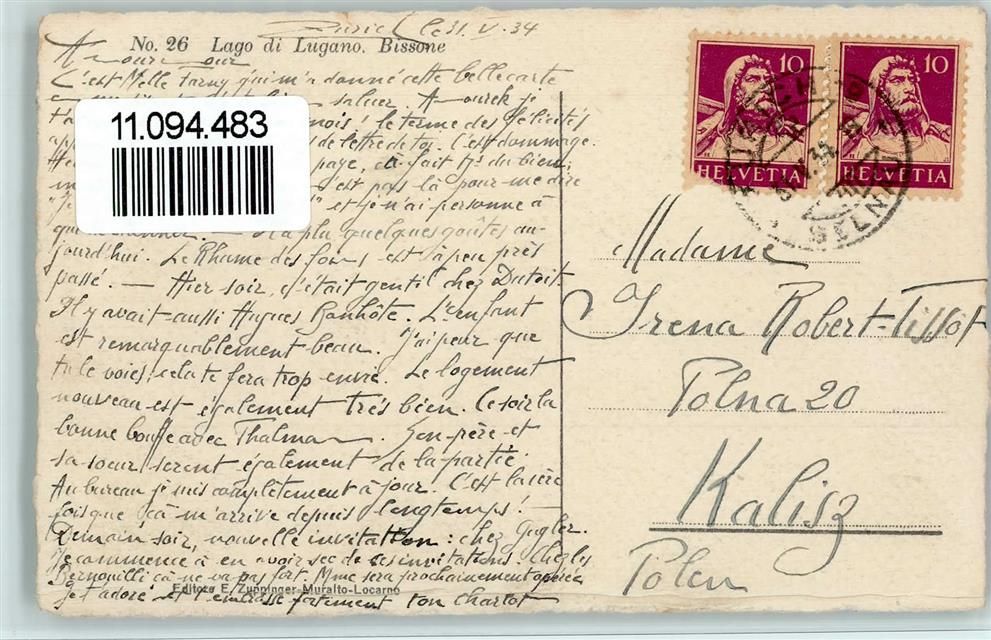 Zurich le 31. V. 34
No. 26 Lago di Lugano. Bissone
Amour
C'est Melle Farny qui m'a donné cette belle carte
saluer. Amourek je
11.094.483
mois! le terme des félicités
de lettre de toi. C'est dommage.
paye, ça fait frs du bien,
n'est pas là pour me dire
" et je n'ai personne à
qui le donner. — Il a plu quelques goûtes au-
jourd'hui. Le Rhume des foins est à peu près
passé. — Hier soir, c'était gentil chez Dutoit.
Il y avait aussi Hugues Banhôte. L'enfant
est remarquablement beau. J'ai peur que
tu le voies, cela te fera trop envie. Le logement
nouveau est également très bien. Ce soir la
bonne bouffe avec Thalman. Son père et
sa soeur seront également de la partie.
Au bureau je suis complètement à jour. C'est la 1ère
fois que ça m'arrive depuis longtemps! —
Demain soir, nouvelle invitation: chez Gugler.
Je commence à en avoir sec de ces invitations. Chez les
Bernouilli ça ne va pas fort. Mme sera prochainement opérée
Editore E. Zuppinger-Muralto-Locarno
Je t'adore et t'embrasse fortement ton Charlot
10 10
HELVETIA HELVETIA
Madame
Irena Robert-Tissot
Polna 20
Kalisz
Polen